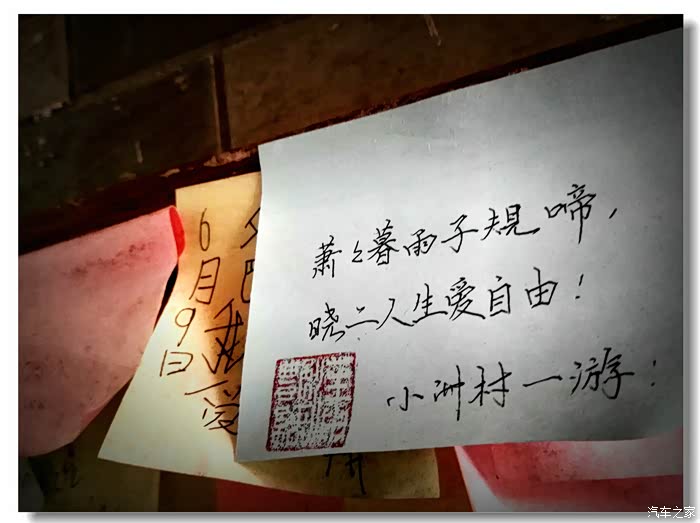 萧々暮雨子规啼，
晓二人生爱自由！
小洲村一游：
6月9日
爱
汽车之家